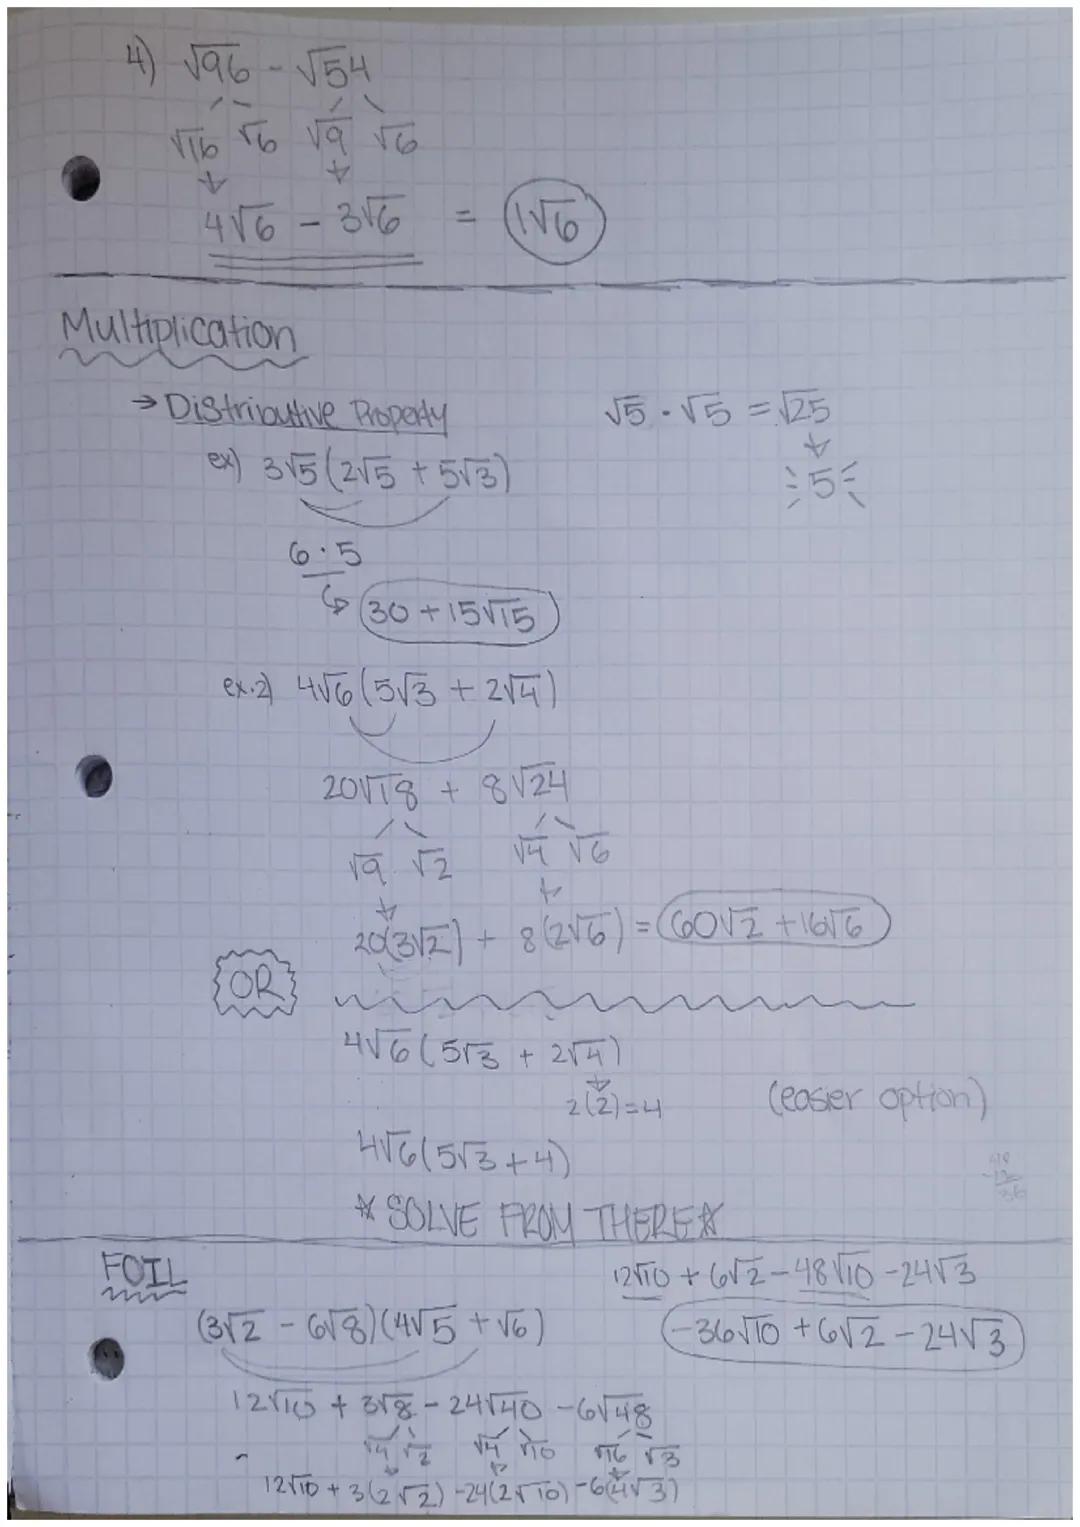 4) √96 - √54
√16 √6 √9 √6
4√6 - 3√6 = 1√6
Multiplication
→ Distributive Property
√5 · √5 = √25
5
ex) 3√5(2√5 + 5√3)
6 · 5
30 + 15√15
ex.2) 4√6(5√3 + 2√4)
20√18 + 8√24
√9 √2 √4 √6
20(3√2) + 8(2√6) = 60√2 + 16√6
OR
4√6(5√3 + 2√4)
2(2)=4 (easier option)
4√6(5√3 + 4)
* SOLVE FROM THERE *
FOIL
12√10 + 6√2 - 48√10 - 24√3
(3√2 - 6√8)(4√5 + √6)
-36√10 + 6√2 - 24√3
12√10 + 3√8 - 24√40 - 6√48
√4 √2 √4 √10 √16 √3
12√10 + 3(2√2) - 24(2√10) - 6(4√3)